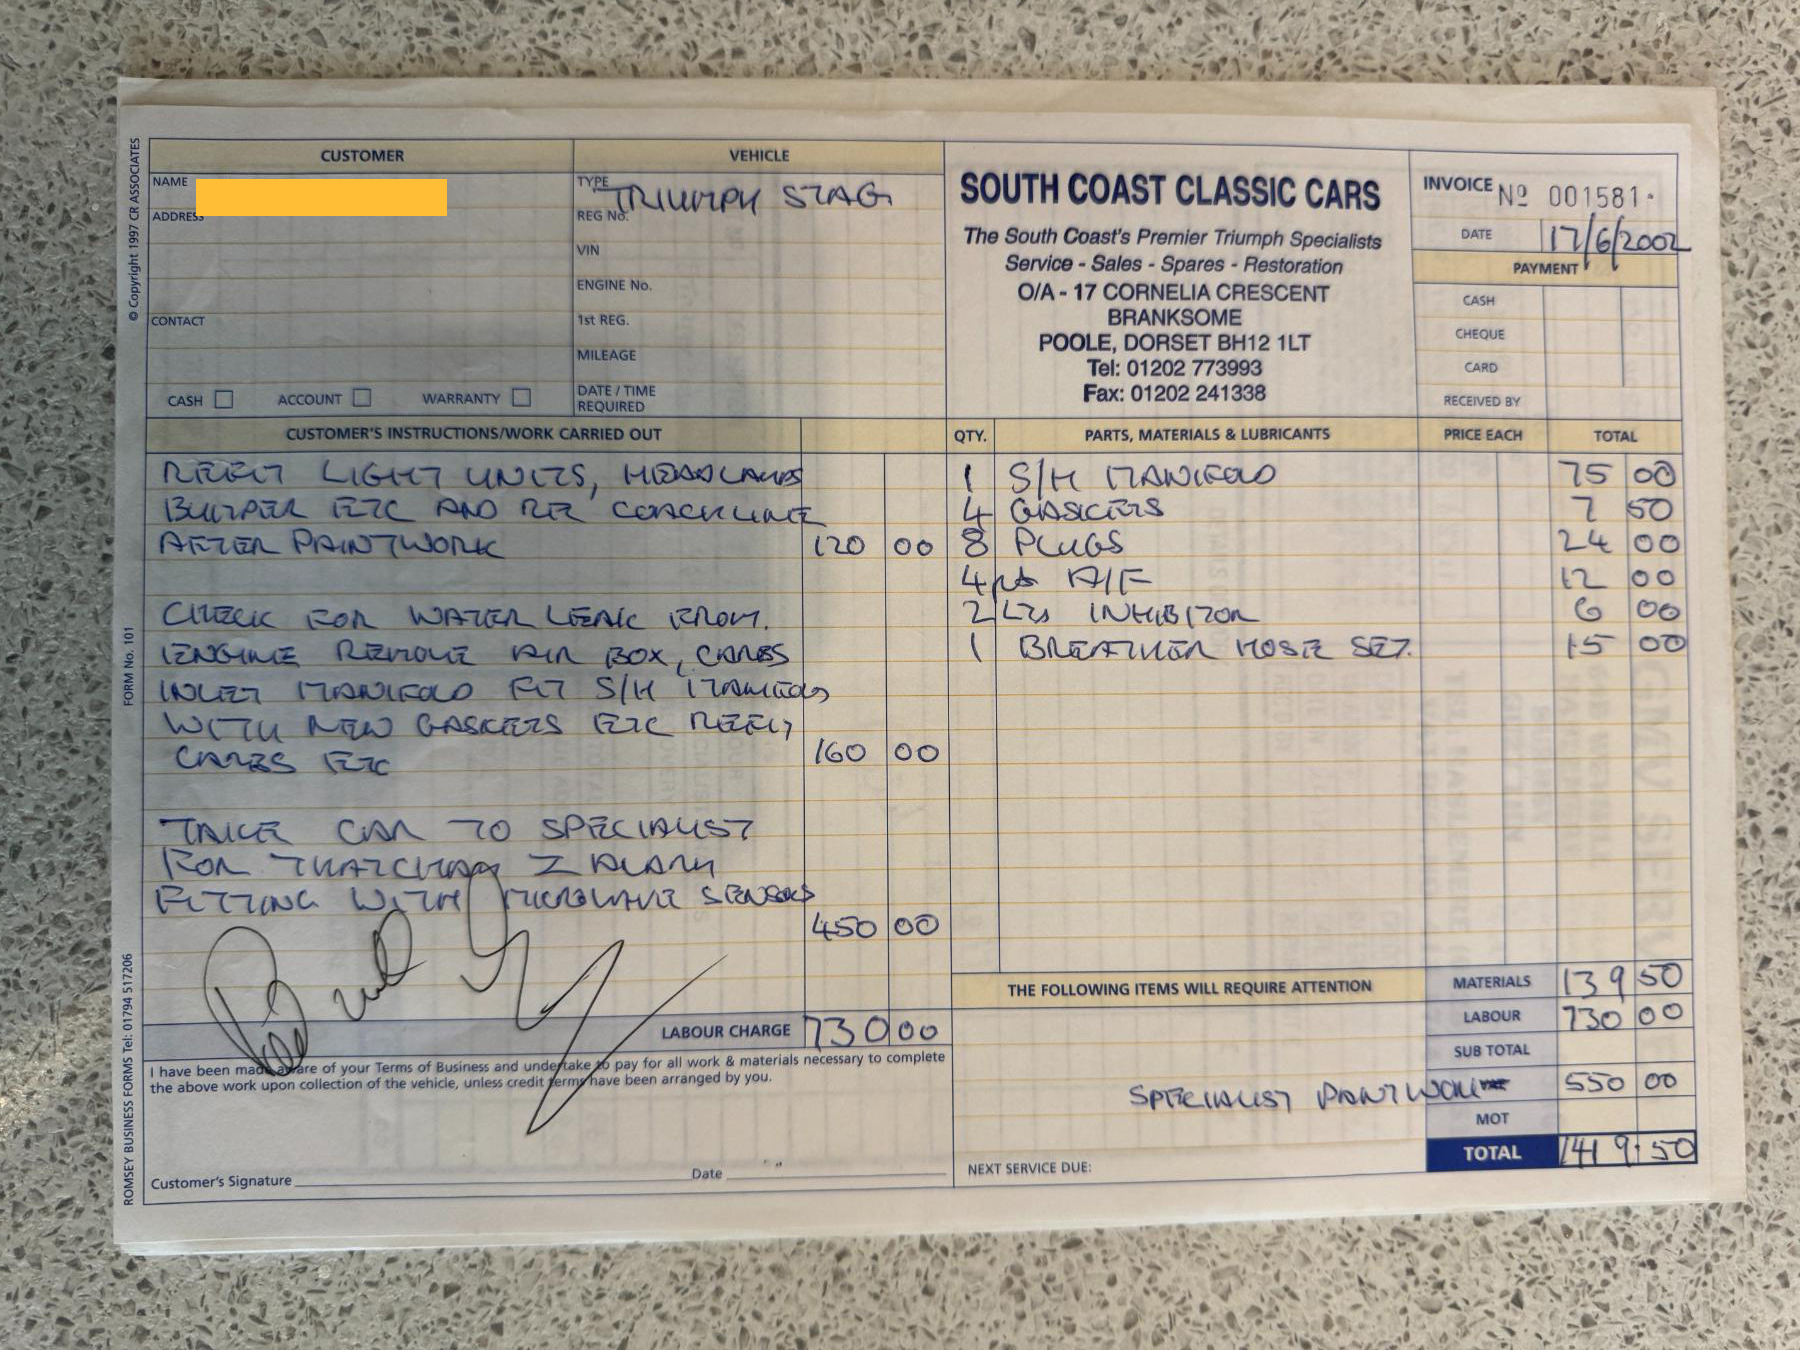 © Copyright 1997 CR ASSOCIATES
FORM No. 101
ROMSEY BUSINESS FORMS Tel: 01794 517206
CUSTOMER
NAME
ADDRESS
CONTACT
CASH ACCOUNT WARRANTY
VEHICLE
TYPE TRIUMPH STAG
REG No.
VIN
ENGINE No.
1st REG.
MILEAGE
DATE / TIME
REQUIRED
SOUTH COAST CLASSIC CARS
The South Coast's Premier Triumph Specialists
Service - Sales - Spares - Restoration
O/A - 17 CORNELIA CRESCENT
BRANKSOME
POOLE, DORSET BH12 1LT
Tel: 01202 773993
Fax: 01202 241338
INVOICE No 001581
DATE 17/6/2002
PAYMENT
CASH
CHEQUE
CARD
RECEIVED BY
CUSTOMER'S INSTRUCTIONS/WORK CARRIED OUT
REFIT LIGHT UNITS, HEADLAMPS
BUMPER ETC AND RE COACHLINE
AFTER PAINTWORK 120 00
CHECK FOR WATER LEAK FROM.
ENGINE REMOVE AIR BOX, CARBS
INLET MANIFOLD FIT S/H MANIFOLD
WITH NEW GASKETS ETC REFIT
CARBS ETC 160 00
TAKE CAR TO SPECIALIST
FOR THATCHAM 2 ALARM
FITTING WITH MICROWAVE SENSORS
450 00
LABOUR CHARGE 730 00
I have been made aware of your Terms of Business and undertake to pay for all work & materials necessary to complete
the above work upon collection of the vehicle, unless credit terms have been arranged by you.
Customer's Signature Date
QTY. PARTS, MATERIALS & LUBRICANTS PRICE EACH TOTAL
1 S/H MANIFOLD 75 00
4 GASKETS 7 50
8 PLUGS 24 00
4 pts A/F 12 00
2 LTS INHIBITOR 6 00
1 BREATHER HOSE SET. 15 00
THE FOLLOWING ITEMS WILL REQUIRE ATTENTION
MATERIALS 139 50
LABOUR 730 00
SUB TOTAL
SPECIALIST PAINTWORK 550 00
MOT
TOTAL 1419.50
NEXT SERVICE DUE: